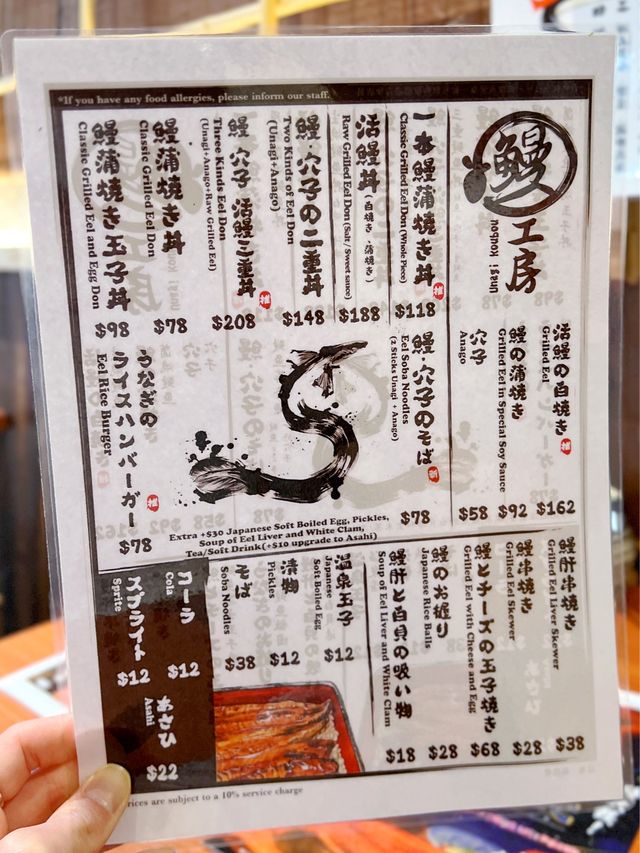 *If you have any food allergies, please inform our staff.
鰻
工房
Unagi Koubou
一本鰻蒲焼き丼
Classic Grilled Eel Don (Whole Piece)
推
$118
活鰻丼(白焼き、蒲焼き)
Raw Grilled Eel Don (Salt / Sweet sauce)
$188
鰻・穴子の二重丼
Two Kinds of Eel Don
(Unagi+Anago)
$148
鰻 穴子 活鰻三重丼
Three Kinds Eel Don
(Unagi+Anago+Raw Grilled Eel)
推
$208
鰻蒲焼き丼
Classic Grilled Eel Don
$78
鰻蒲焼き玉子丼
Classic Grilled Eel and Egg Don
$98
活鰻の白焼き
Grilled Eel
推
$162
鰻の蒲焼き
Grilled Eel in Special Soy Sauce
$92
穴子
Anago
$58
鰻・穴子のそば
Eel Soba Noodles
(2 Sticks Unagi + Anago)
新
$78
うなぎの
ライスハンバーガー
Eel Rice Burger
推
$78
Extra +$30 Japanese Soft Boiled Egg, Pickles,
Soup of Eel Liver and White Clam,
Tea/Soft Drink(+$10 upgrade to Asahi)
鰻肝串焼き
Grilled Eel Liver Skewer
$38
鰻串焼き
Grilled Eel Skewer
$28
鰻とチーズの玉子焼き
Grilled Eel with Cheese and Egg
$68
鰻のお握り
Japanese Rice Balls
$28
鰻肝と白貝の吸い物
Soup of Eel Liver and White Clam
$18
温泉玉子
Japanese
Soft Boiled Egg
$12
漬物
Pickles
$12
そば
Soba Noodles
$38
コーラ
Cola
$12
スプライト
Sprite
$12
あさひ
Asahi
$22
rices are subject to a 10% service charge